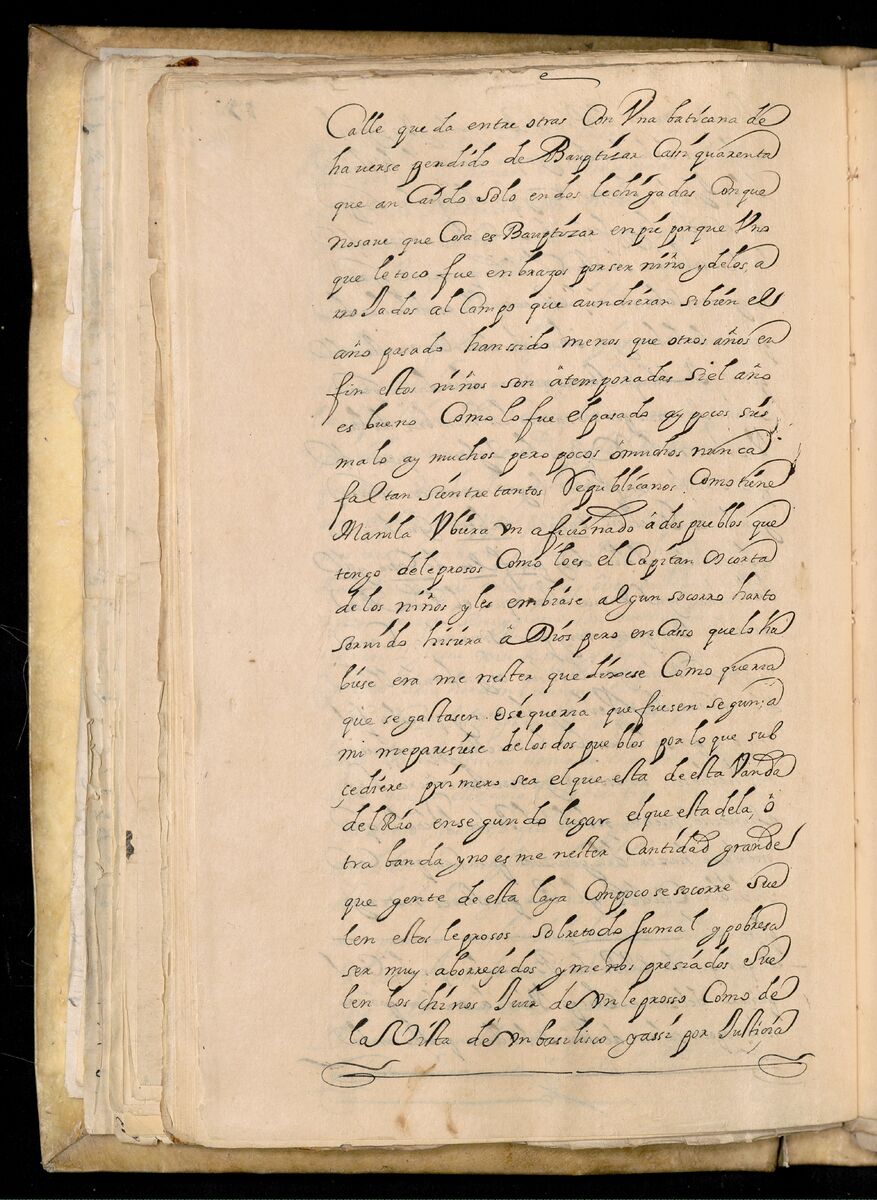 Calle que da entre otras Con Vna baticana de
haverse pendido de Bauptizar Cassi quarenta
que an Caido solo en dos lechigadas Con que
no save que Cosa es Bauptizar en pie porque Vno
que le toco fue en brazos por ser niño y de los, a
rroJados al Campo que aundieran si bien el
año pasado hanssido menos que otros años en
fin estos niños son â temporadas si el año
es bueno Como lo fue el pasado ay pocos si es
malo ay muchos pero pocos ô muchos nunca
faltan si entre tantos Republicanos Como tiene
Manila Vbiera vn aficionado â dos pueblos que
tengo de leprosos Como lo es el Capitan Orcorta
de los niños y les embiase algun socorro harto
servido hisiera â Dios pero en Casso que lo ha
buse era menester que dixese Como queria
que se gastasen. O si queria que fuesen segun, a
mi me paresiese de los dos pueblos por lo que sub
çediere primero sea el que esta de esta Vanda
del Rio en segundo lugar el que esta de la, ô
tra banda y no es menester Cantidad grande
que gente de esta laya Con poco se socorre Sue
len estos leprosos sobre todo su mal y pobresa
ser muy aborreçidos y menospresiados Sue
len los chinos Juir de vn leprosso Como de
la Vista de vn basilisco y assi por Justiçia